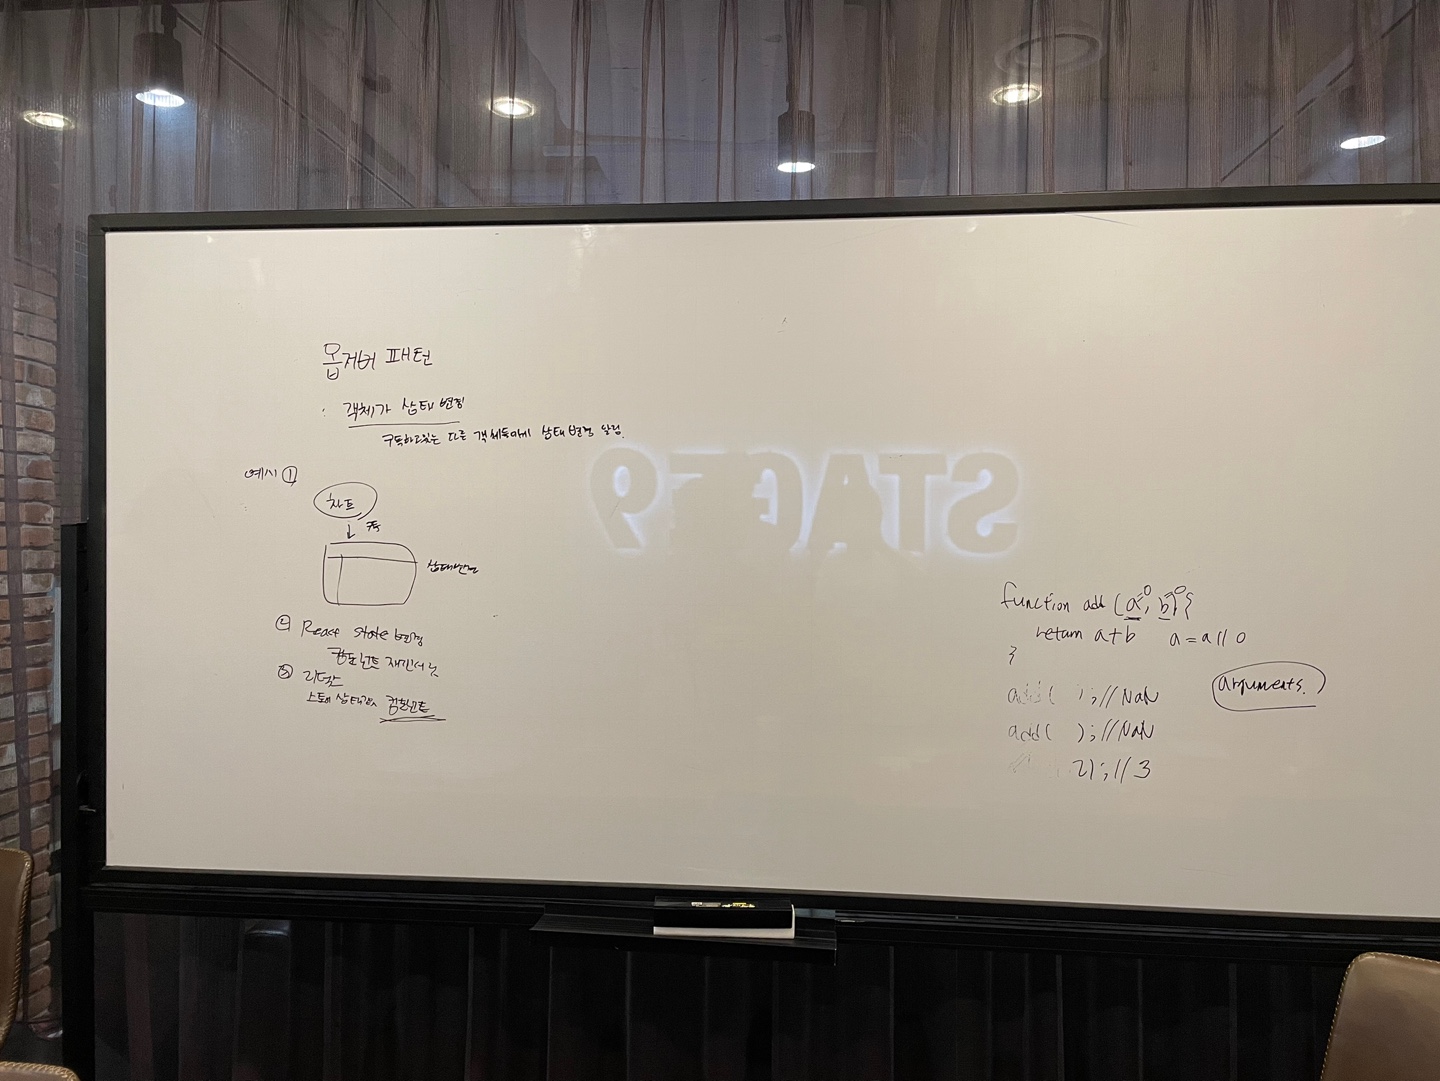 옵저버 패턴
: 객체가 상태 변경
구독하고있는 다른 객체들에게 상태변경 알림.
예시 ①
차트
↓
상태변경
② React state 변경
컴포넌트 재렌더링
③ 리덕스
스토어 상태 컴포넌트
STAGE9
function add (a=0, b=0) {
return a+b a = a || 0
}
add( ); // NaN
arguments.
add( ); // NaN
2); // 3